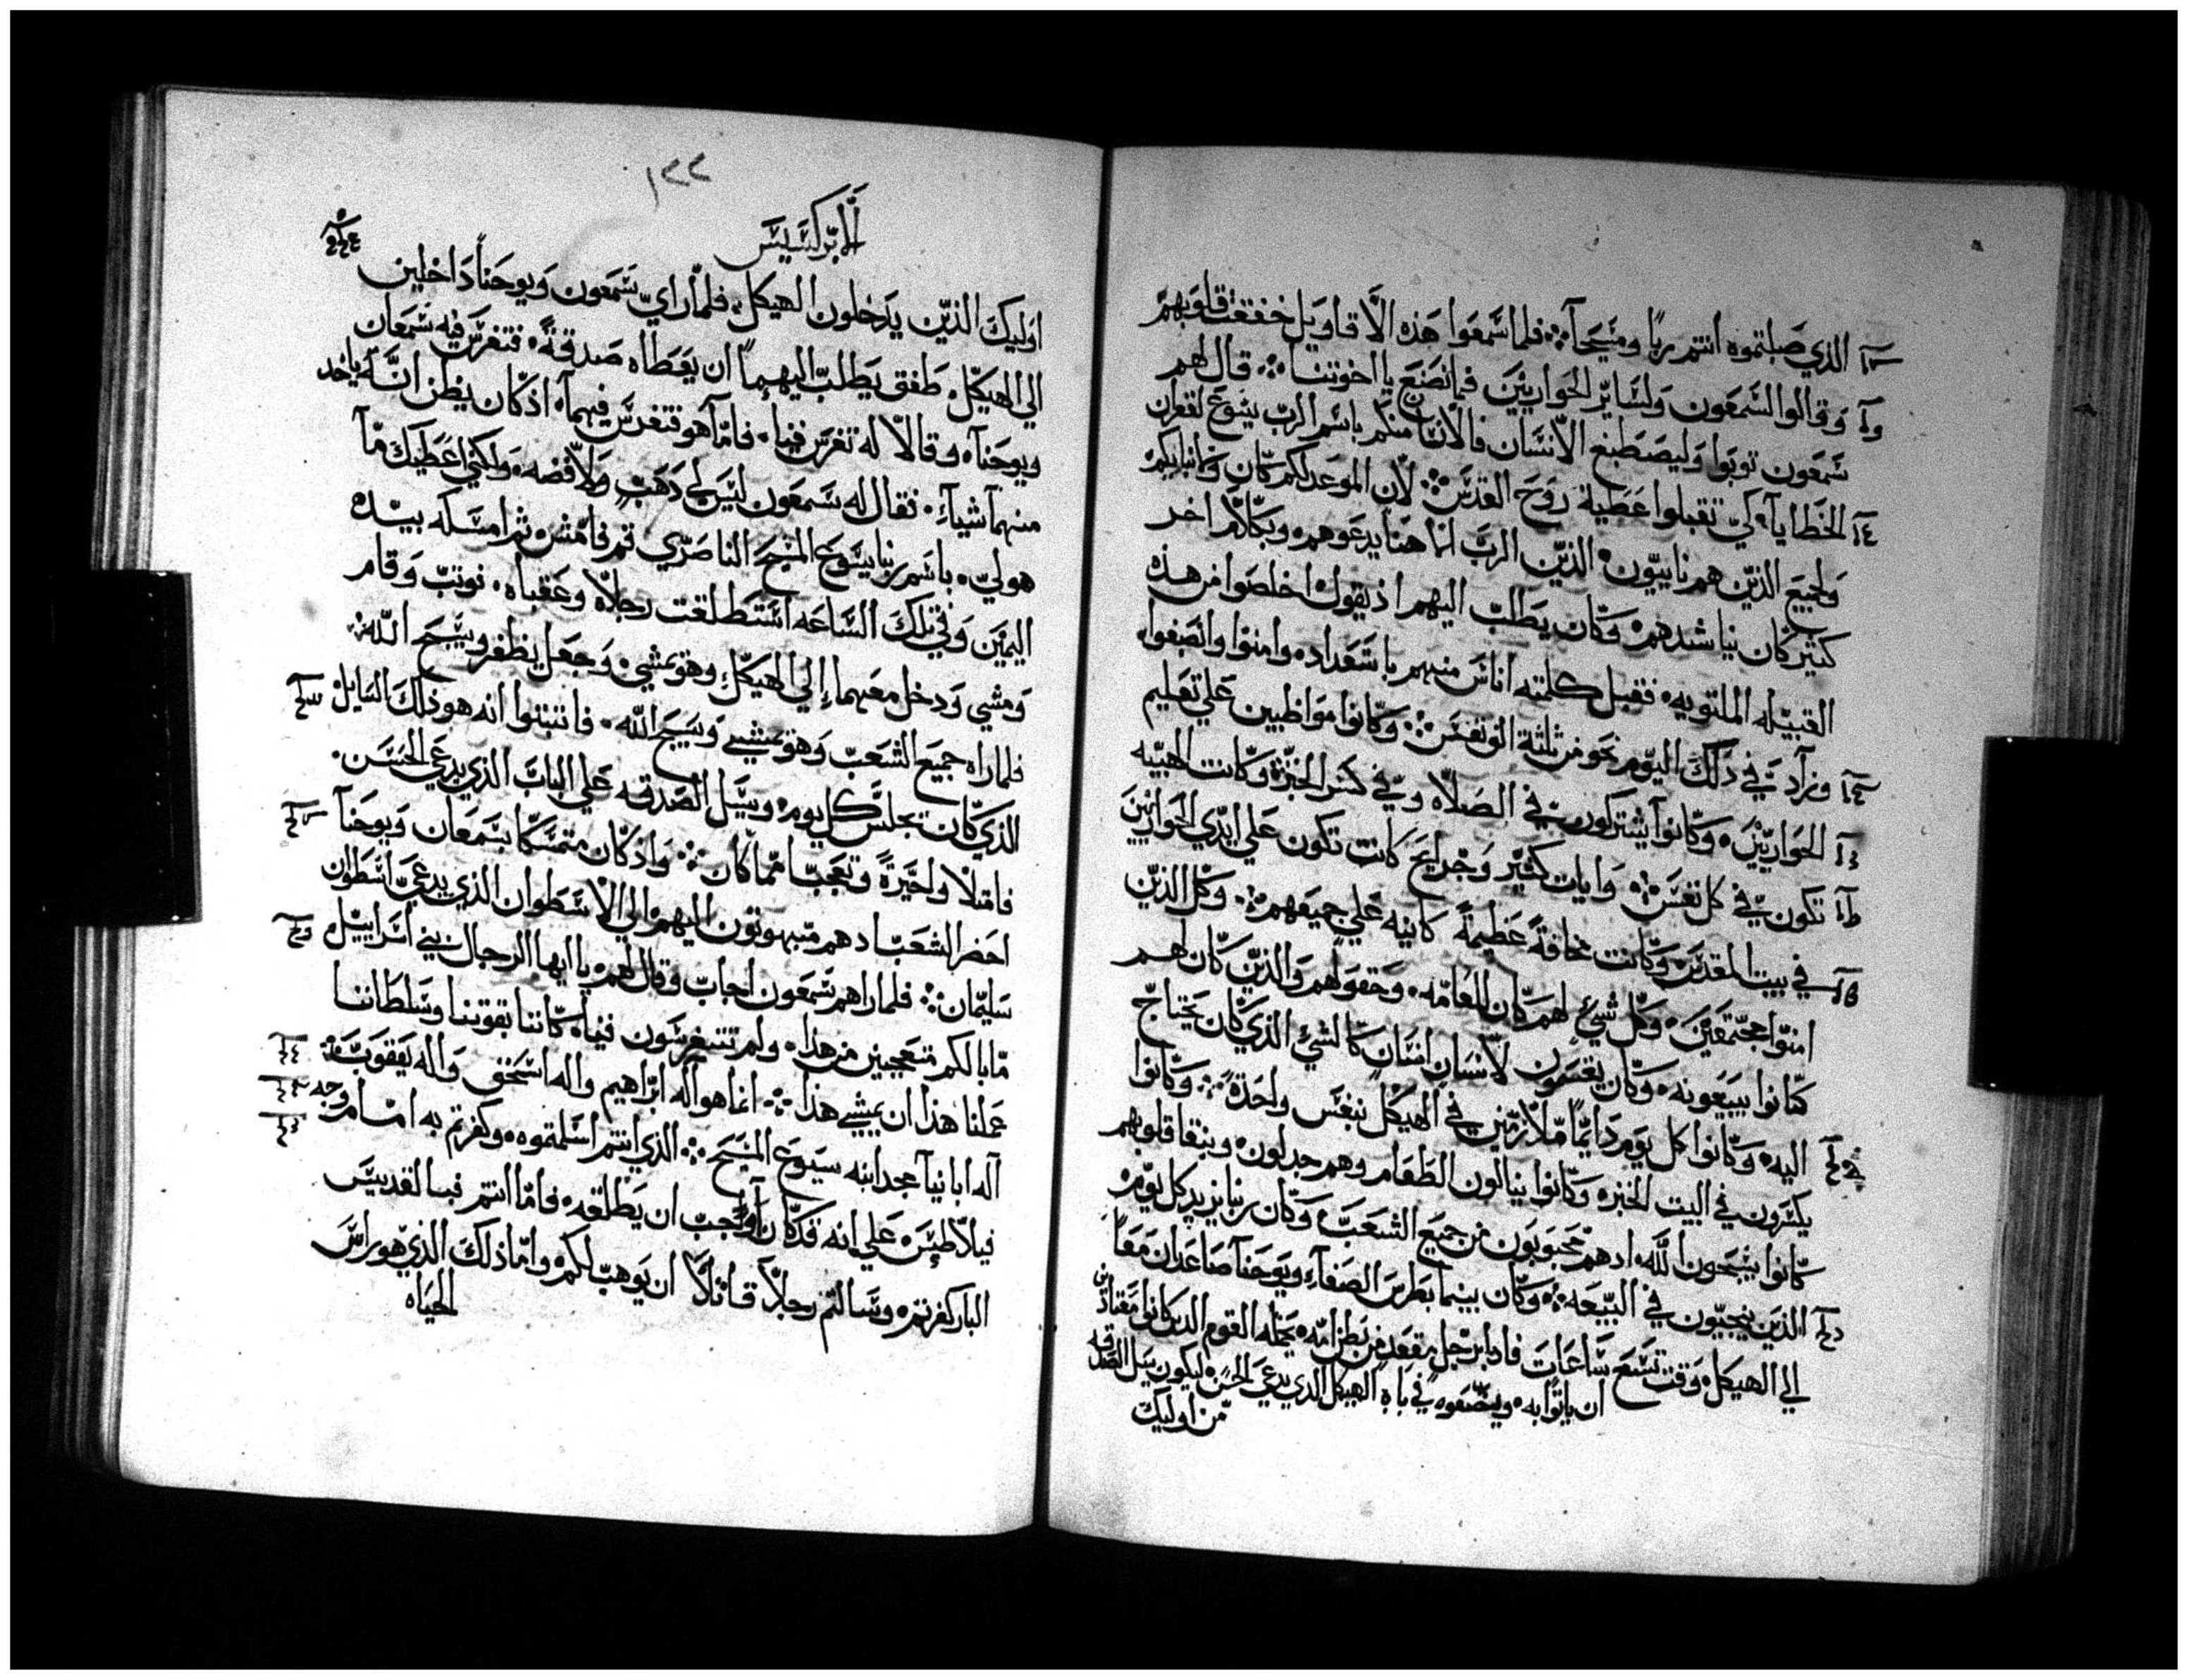 الذي صَلبتموه انتم ربًا ومسَيحآ ܀ فلما سَمعوا هَذه الاقاويل خفقت قلوبهم
وقالوا لشمعون ولسَاير الحَواريين فما نصَنع يا اخوتنا ܀ قال لهم
شمعون توبوا وليصَطبغ الانسَان فالانسَان منكم باسَم الرب يشوع لغفران
الخطايا كي تقبلوا عَطية روَح القدسَ ܀ لان الموعد لكم كان ولابنايكم
ولجميع الذين هم نايبون الذين الرب الاهنا يدعَوهم وبكلام اخر
كثير كان يناشدهم وكان يطلب اليهم اذ يقول اخلصَوا من هذه
القبيله الملتويه فقبل كلمته اناسَ منهم باسَتعداد وامنوا وانصَبغوا
وزاد في ذلك اليوم نحو من ثلثة الف نفسَ ܀ وكانوا مواظبين على تعَليم
الحواريين وكانوا يشتركون في الصَلاه وفي كسَر الخبز وكانت الهيبه
تكون في كل نفسَ ܀ وايات كثير وجرايح كانت تكون على ايدي الحواريين
في بيت المقدسَ وكانت مخافةً عَظيمةً كاينه على جميعَهم ܀ وكل الذين
امنوا مجتمعَين وكل شيء لهم كان للعَامه وحقولهم والذين كان لهم
كانوا يبيعَونه وكان يقسَمون لانسَان انسَان كالشيء الذي كان يحتاج
اليه وكانوا كل يوم دايمًا ملازمين في الهيكل بنفسَ واحدة ܀ وكانوا
يكسَرون في البيت الخبز وكانوا ينالون الطعَام وهم جدلون وبنقا قلوبهم
كانوا يسَبحون الله ادهم محبوبون من جميعَ الشعَب وكان ربنا يزيد كل يوم
الذين ينجيون في البيعَه ܀ وكان بينما بطرسَ الصَفا ويوحَنا صَاعَدان معًا
الي الهيكل وقت تسَع سَاعَات فادا برجل مقعَد من بطن امه يحمله القوم الدين كانوا معَتادين
ان ياتوا به ويضَعوه في باب الهيكل الدي يدعَى الحسَن ليكون يسَل الصَدقه
من اوليك
١٢٢
الابركسَيسَ
اوليك الذين يدخلون الهيكل فلما راي شمعون ويوحنا داخلين
الي الهيكل طفق يطلب اليهما ان يعَطاه صَدقةً فتفرسَ فيه شمعَان
ويوحَنا وقالا له تفرسَ فينا فاما هو فتفرسَ فيهما اذ كان يظن انه ياخد
منهما شياء فقال له شمعون ليسَ لي دَهَب ولا فضه ولكني اعَطيك ما
هو لي باسَم ربنا يشوع المسَيح الناصَري قم فامش ثم امسَكه بيده
اليمين وفي تلك السَاعَه اسَتطلقت رجلاه وعَقباه فوثب وقام
ومشي ودخل معَهما الي الهيكل وهو يمشي وجعل يظفر ويسَبح الله ܀
فلما راه جميعَ الشعَب وهو يمشي ويسَبح الله فاتبتوا انه هو ذلك السَايل
الذي كان يجلسَ كل يوم ويسَيل الصَدقه على الباب الذي يدعَى الحسَن
فامتلا وا حيرةً وتعَجبا مما كان ܀ واذ كان متمسَكا بشمعَان ويوحَنا
احضر الشعَب ادهم مبهوتون اليهم الي الاسَطوان الذي يدعَى اسَطوان
سَليمان ܀ فلما راهم شمعَون اجاب وقال لهم يا ايها الرجال بني اسَراييل
ما بالكم متعَجبين من هذا ولم تتفرسَون فينا كاننا بقوتنا وسَلطاننا
عَملنا هذا ان يمشي هذا ܀ انما هو اله ابراهيم واله اسَحق واله يعَقوب
اله اباينا مجد ابنه يسَوع المسَيح ܀ الذي انتم اسَلمتوه وكفرتم به امام وجه
فيلاطسَ على انه قد كان اوجب ان يطلقه فاما انتم فبالقديسَ
البار كفرتم وسَالتم رجلا قاتلا ان يوهب لكم واما ذلك الذي هو راسَ
الحياه